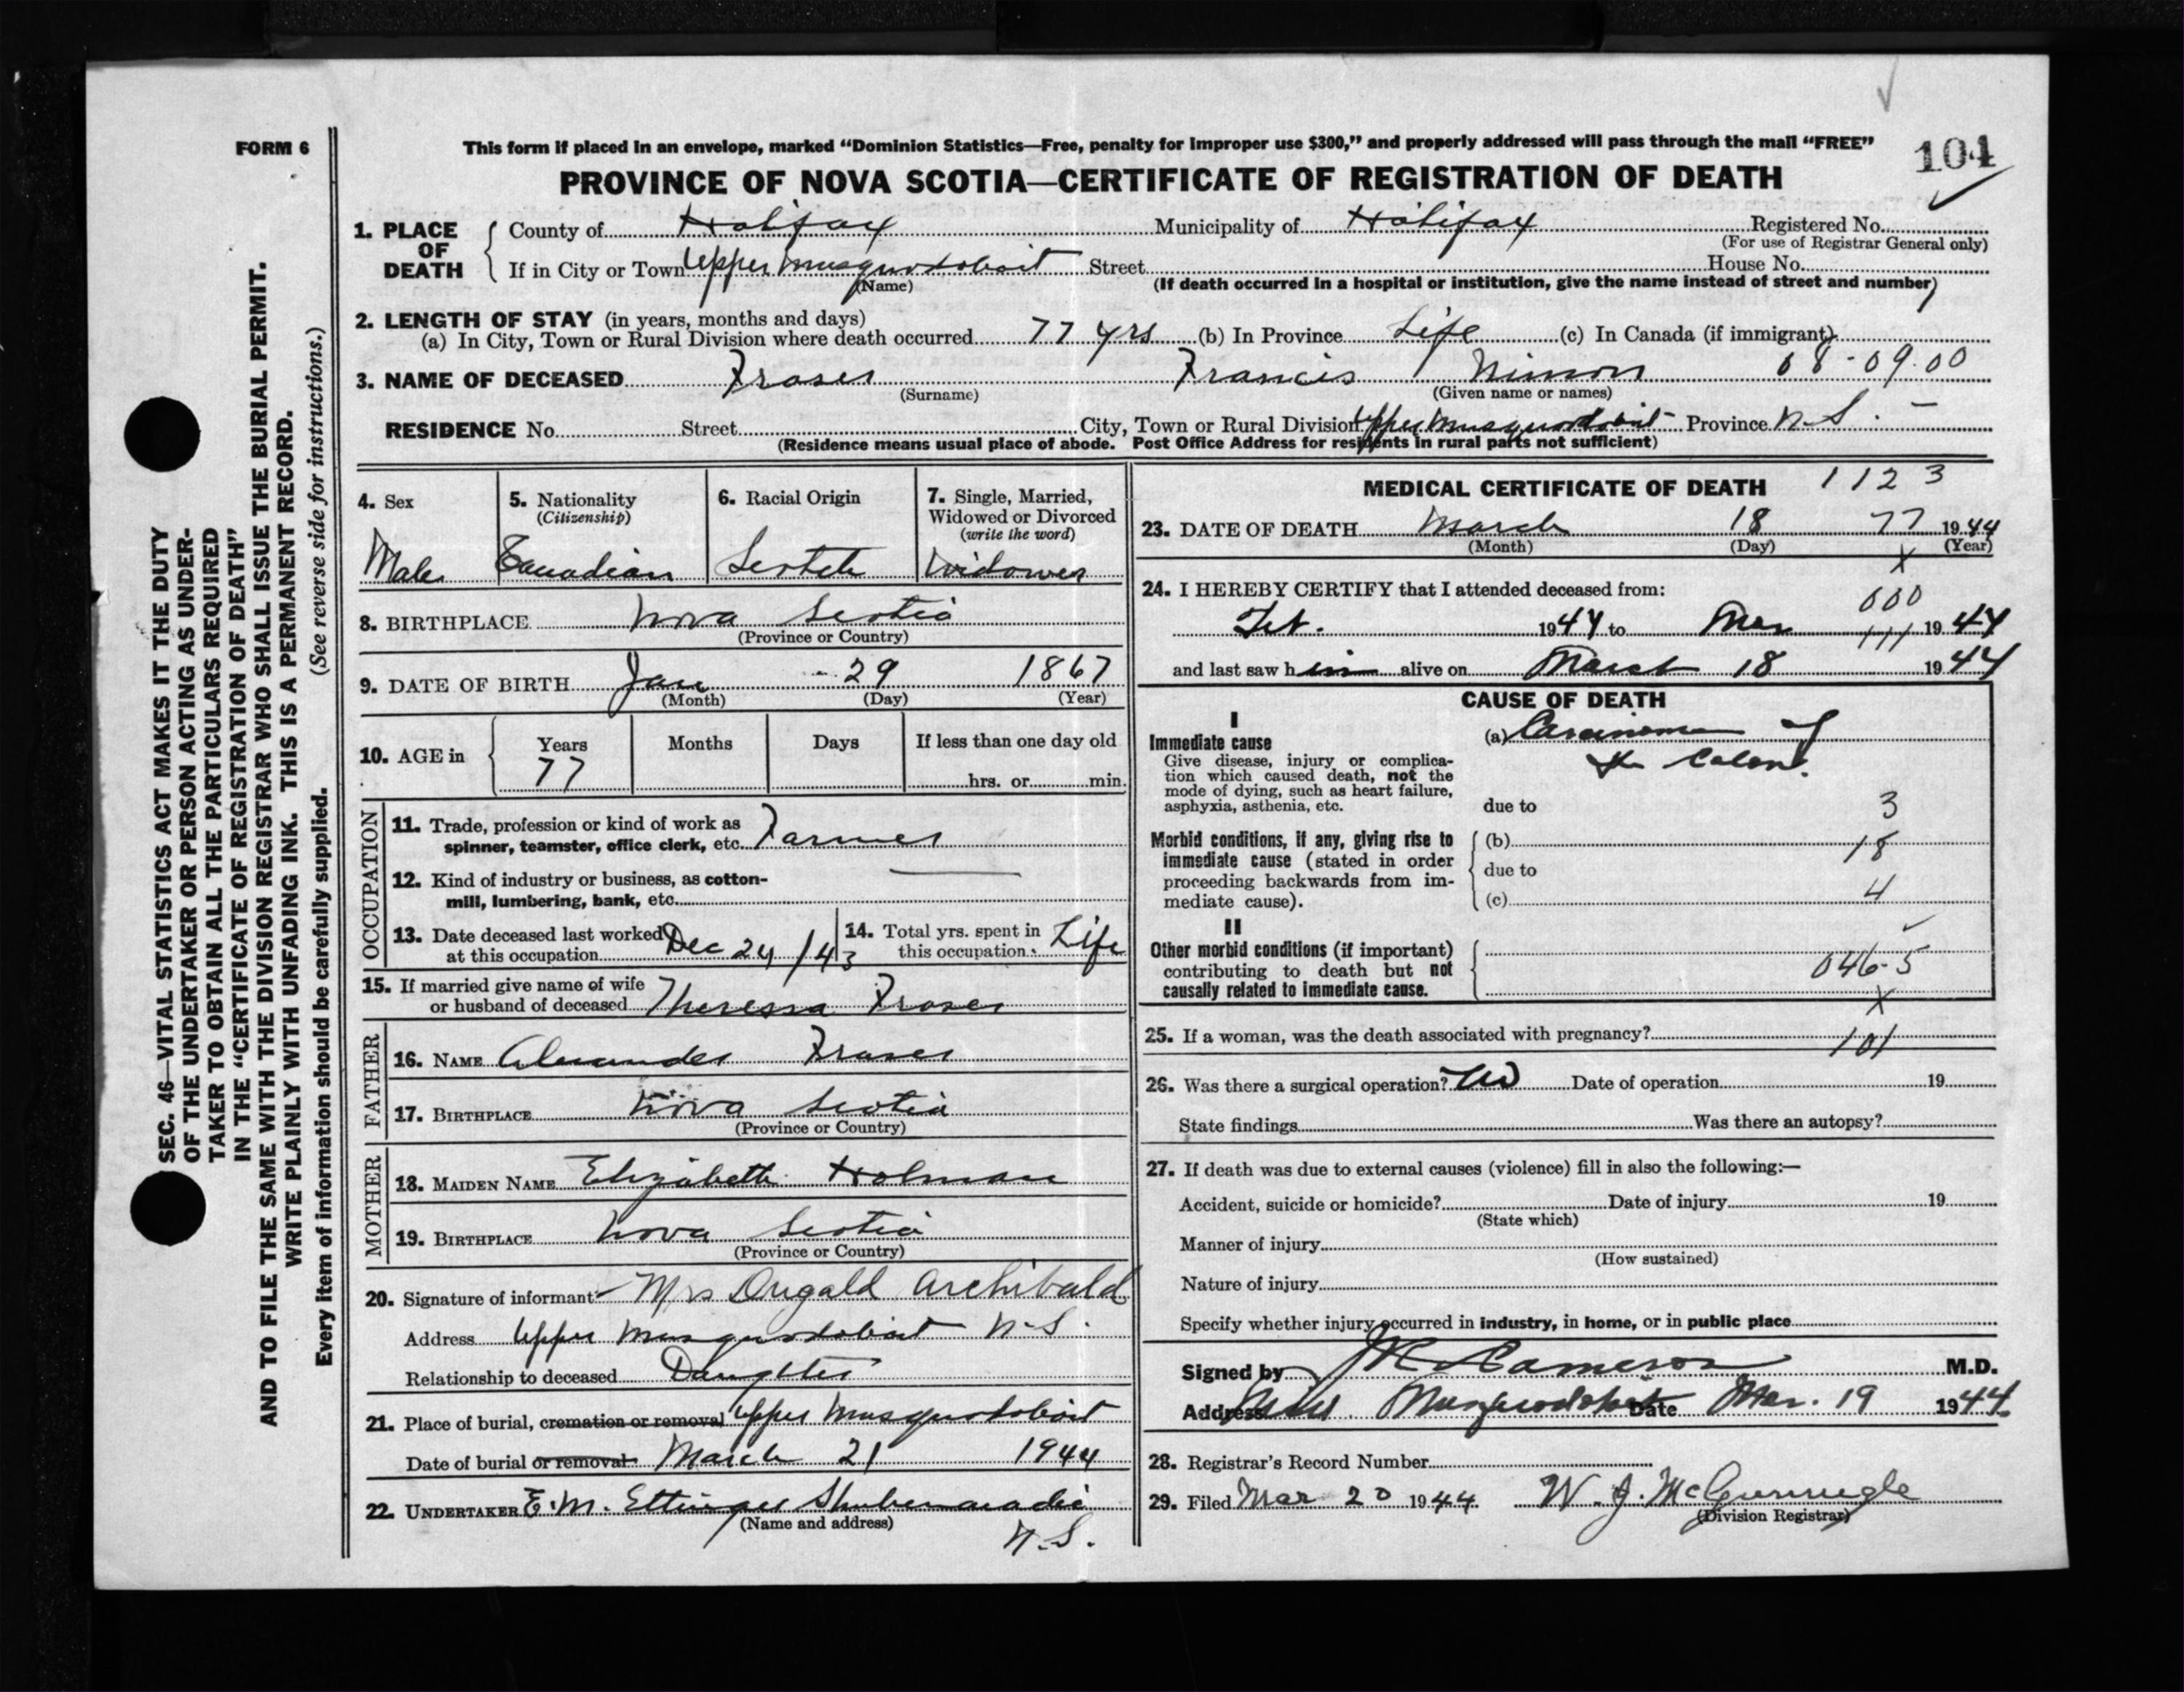 FORM 6
This form if placed in an envelope, marked “Dominion Statistics—Free, penalty for improper use $300,” and properly addressed will pass through the mail “FREE”
104
PROVINCE OF NOVA SCOTIA—CERTIFICATE OF REGISTRATION OF DEATH
1. PLACE OF DEATH
County of Halifax Municipality of Halifax Registered No.
(For use of Registrar General only)
If in City or Town Upper Musquodoboit Street House No.
(Name) (If death occurred in a hospital or institution, give the name instead of street and number)
2. LENGTH OF STAY (in years, months and days)
(a) In City, Town or Rural Division where death occurred 77 yrs (b) In Province Life (c) In Canada (if immigrant)
08-09.00
3. NAME OF DECEASED Fraser Francis
(Surname) (Given name or names)
RESIDENCE No. Street City, Town or Rural Division Upper Musquodoboit Province N.S. -
(Residence means usual place of abode. Post Office Address for residents in rural parts not sufficient)
4. Sex
Male
5. Nationality
(Citizenship)
Canadian
6. Racial Origin
Scotch
7. Single, Married,
Widowed or Divorced
(write the word)
Widower
8. BIRTHPLACE Nova Scotia
(Province or Country)
9. DATE OF BIRTH Jan 29 1867
(Month) (Day) (Year)
10. AGE in
Years Months Days If less than one day old
77
hrs. or min.
OCCUPATION
11. Trade, profession or kind of work as
spinner, teamster, office clerk, etc. Farmer
12. Kind of industry or business, as cotton-
mill, lumbering, bank, etc.
13. Date deceased last worked
at this occupation Dec 24/43
14. Total yrs. spent in
this occupation Life
15. If married give name of wife
or husband of deceased Theressa Fraser
FATHER
16. NAME Alexander Fraser
17. BIRTHPLACE Nova Scotia
(Province or Country)
MOTHER
18. MAIDEN NAME Elizabeth Holman
19. BIRTHPLACE Nova Scotia
(Province or Country)
20. Signature of informant Mrs Dugald Archibald
Address Upper Musquodoboit N.S.
Relationship to deceased Daughter
21. Place of burial, cremation or removal Upper Musquodoboit
Date of burial or removal March 21 1944
22. UNDERTAKER E.M. Ettinger Shubenacadie
(Name and address)
N.S.
MEDICAL CERTIFICATE OF DEATH 1123
23. DATE OF DEATH March 18 77 1944
(Month) (Day) (Year)
X
24. I HEREBY CERTIFY that I attended deceased from:
000
Feb. 1944 to Mar 111 1944
and last saw him alive on March 18 1944
CAUSE OF DEATH
I
Immediate cause
Give disease, injury or complica-
tion which caused death, not the
mode of dying, such as heart failure,
asphyxia, asthenia, etc.
(a) Carcinoma of
the Colon.
due to 3
Morbid conditions, if any, giving rise to
immediate cause (stated in order
proceeding backwards from im-
mediate cause).
(b) 18
due to
(c) 4
II
Other morbid conditions (if important)
contributing to death but not
causally related to immediate cause.
046-5
X
25. If a woman, was the death associated with pregnancy? 101
26. Was there a surgical operation? No Date of operation 19
State findings Was there an autopsy?
27. If death was due to external causes (violence) fill in also the following:—
Accident, suicide or homicide? Date of injury 19
(State which)
Manner of injury
(How sustained)
Nature of injury
Specify whether injury occurred in industry, in home, or in public place
Signed by Cameron M.D.
Address Musquodoboit Date Mar. 19 1944.
28. Registrar's Record Number
29. Filed Mar 20 1944. W. J. McGunnigle
(Division Registrar)
SEC. 46—VITAL STATISTICS ACT MAKES IT THE DUTY
OF THE UNDERTAKER OR PERSON ACTING AS UNDER-
TAKER TO OBTAIN ALL THE PARTICULARS REQUIRED
IN THE “CERTIFICATE OF REGISTRATION OF DEATH”
AND TO FILE THE SAME WITH THE DIVISION REGISTRAR WHO SHALL ISSUE THE BURIAL PERMIT.
WRITE PLAINLY WITH UNFADING INK. THIS IS A PERMANENT RECORD.
Every item of information should be carefully supplied. (See reverse side for instructions.)